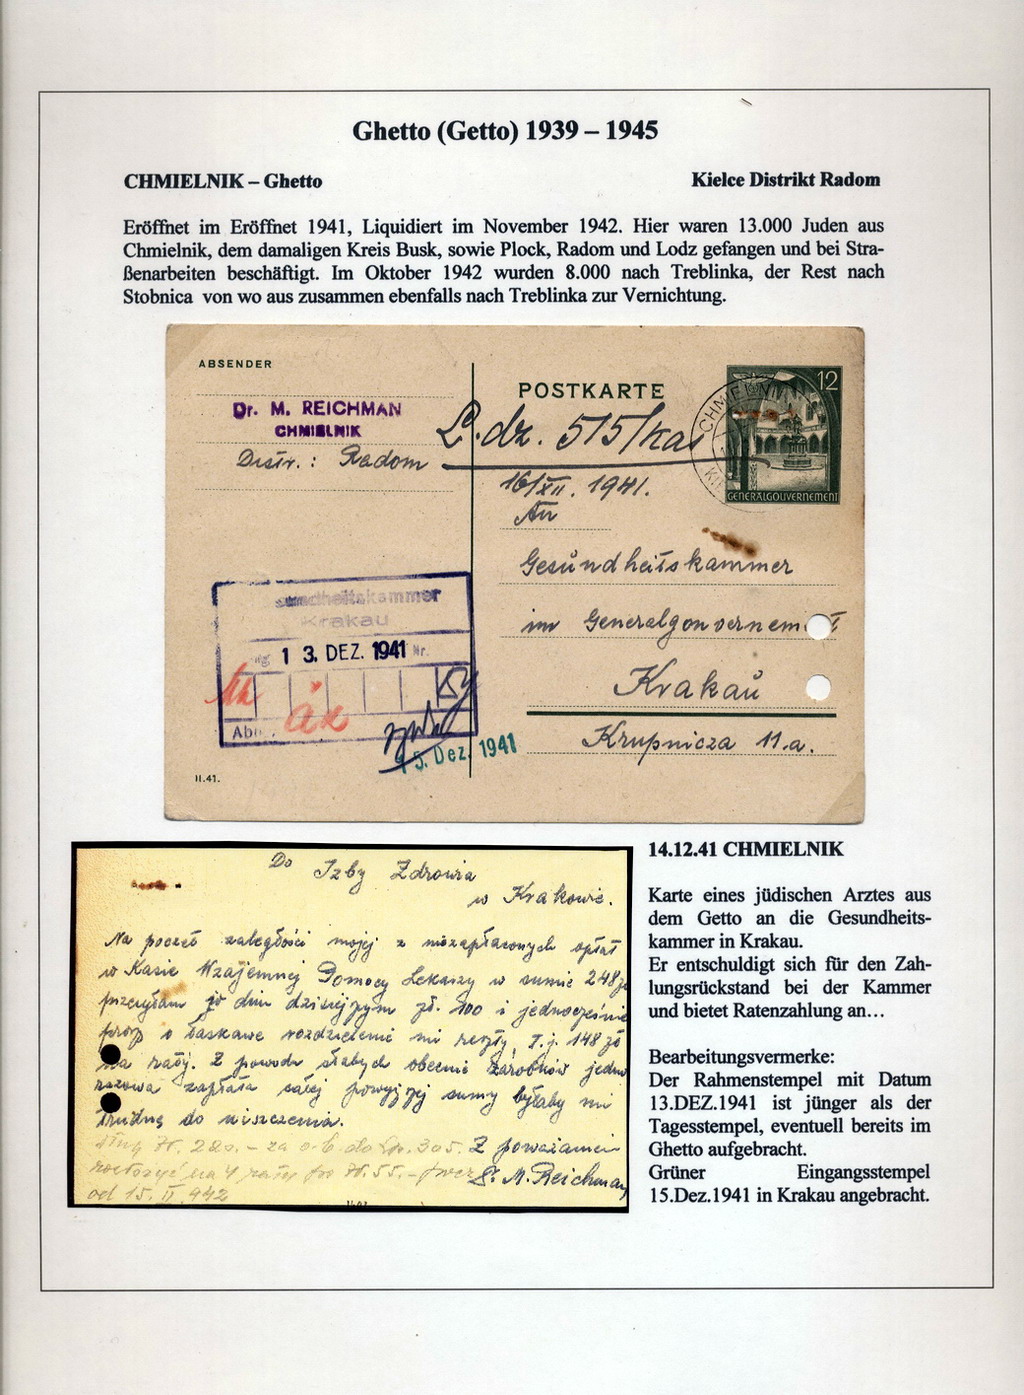 Ghetto (Getto) 1939 – 1945
CHMIELNIK – Ghetto
Kielce Distrikt Radom
Eröffnet im Eröffnet 1941, Liquidiert im November 1942. Hier waren 13.000 Juden aus
Chmielnik, dem damaligen Kreis Busk, sowie Plock, Radom und Lodz gefangen und bei Stra-
ßenarbeiten beschäftigt. Im Oktober 1942 wurden 8.000 nach Treblinka, der Rest nach
Stobnica von wo aus zusammen ebenfalls nach Treblinka zur Vernichtung.
ABSENDER
Dr. M. REICHMAN
CHMIELNIK
Distr.: Radom
POSTKARTE
L.dz. 515/kas
16/XII. 1941.
12
GENERALGOUVERNEMENT
An
Gesundheitskammer
im Generalgouvernement
Krakau
Krupnicza 11.a.
sundheitskammer
Krakau
13. DEZ. 1941 Nr.
Abt.
15. Dez. 1941
II.41.
Do Izby Zdrowia
w Krakowie.
Na poczet zaległości mojej z niezapłaconych opłat
w Kasie Wzajemnej Pomocy Lekarzy w sumie 248 zł
przesyłam w dniu dzisiejszym zł. 100 i jednocześnie
proszę o łaskawe rozdzielenie mi reszty t.j. 148 zł
na raty. Z powodu słabych obecnie zarobków jedno
razowa zapłata całej powyższej sumy byłaby mi
trudną do uiszczenia.
Z poważaniem
Dr. M. Reichman
od 15. II 942
14.12.41 CHMIELNIK
Karte eines jüdischen Arztes aus
dem Getto an die Gesundheits-
kammer in Krakau.
Er entschuldigt sich für den Zah-
lungsrückstand bei der Kammer
und bietet Ratenzahlung an…
Bearbeitungsvermerke:
Der Rahmenstempel mit Datum
13.DEZ.1941 ist jünger als der
Tagesstempel, eventuell bereits im
Ghetto aufgebracht.
Grüner Eingangsstempel
15.Dez.1941 in Krakau angebracht.